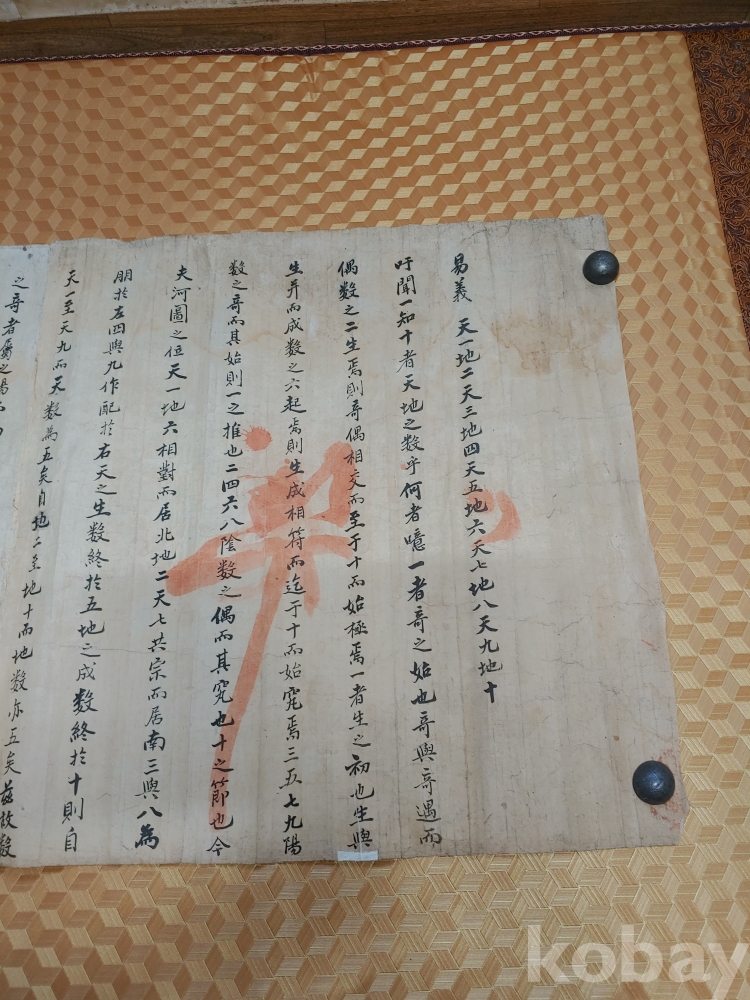 易義 天一地二天三地四天五地六天七地八天九地十
吁聞一知十者天地之数乎何者噫一者竒之始也竒與竒遇而
偶数之二生焉則竒偶相交而至于十而始極焉一者生之初也生與
生并而成数之六起焉則生成相符而迄于十而始究焉三五七九陽
数之竒而其始則一之推也二四六八陰数之偶而其究也十之節也今
夫河圖之位天一地六相對而居北地二天七共宗而居南三與八為
朋於左四與九作配於右天之生数終於五地之成数終於十則自
天一至天九而天数為五矣自地二至地十而地数亦五矣茲故数
之竒者屬之陽
kobay